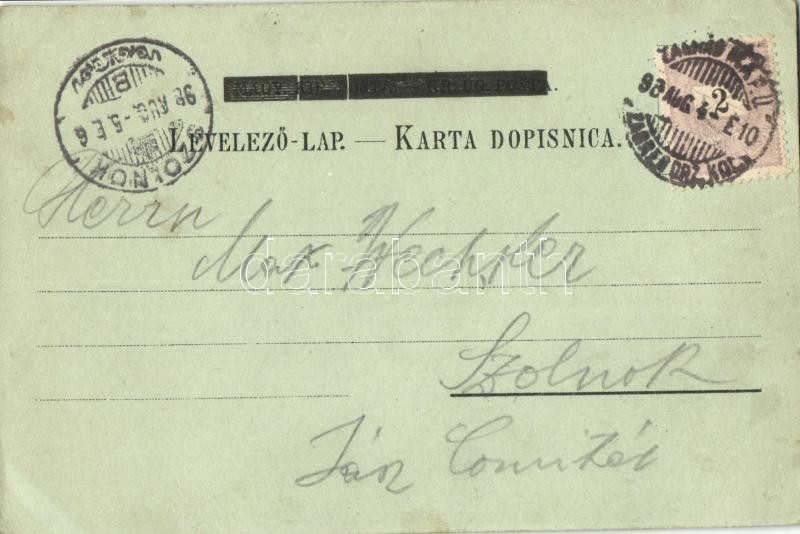 SZOLNOK
98 AUG. -5. E 6
MAGY. KIR. POSTA. — KR. UG. POSTA.
2
ZÁGRÁB
98 AUG. 4. E 10
ZAGREB DRZ. KOL.
LEVELEZŐ-LAP. — KARTA DOPISNICA.
Herrn
Max Wechsler
darabanth
Szolnok
Jász Comitát